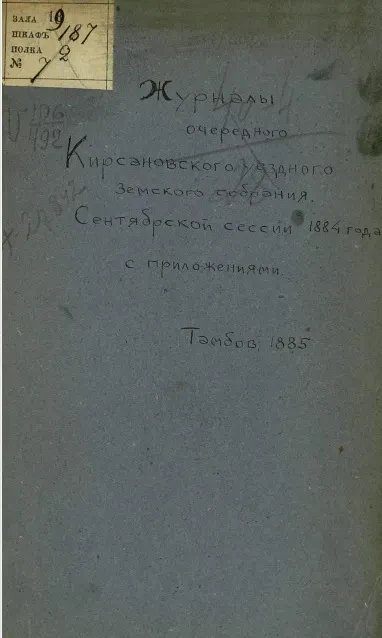 ЗАЛА 19
ШКАФЪ 187
ПОЛКА 2
№ 7
V 106
492
Журналы
очередного
Кирсановского уездного
Земского собрания.
Сентябрской сессии 1884 года
с приложениями.
Тамбов. 1885